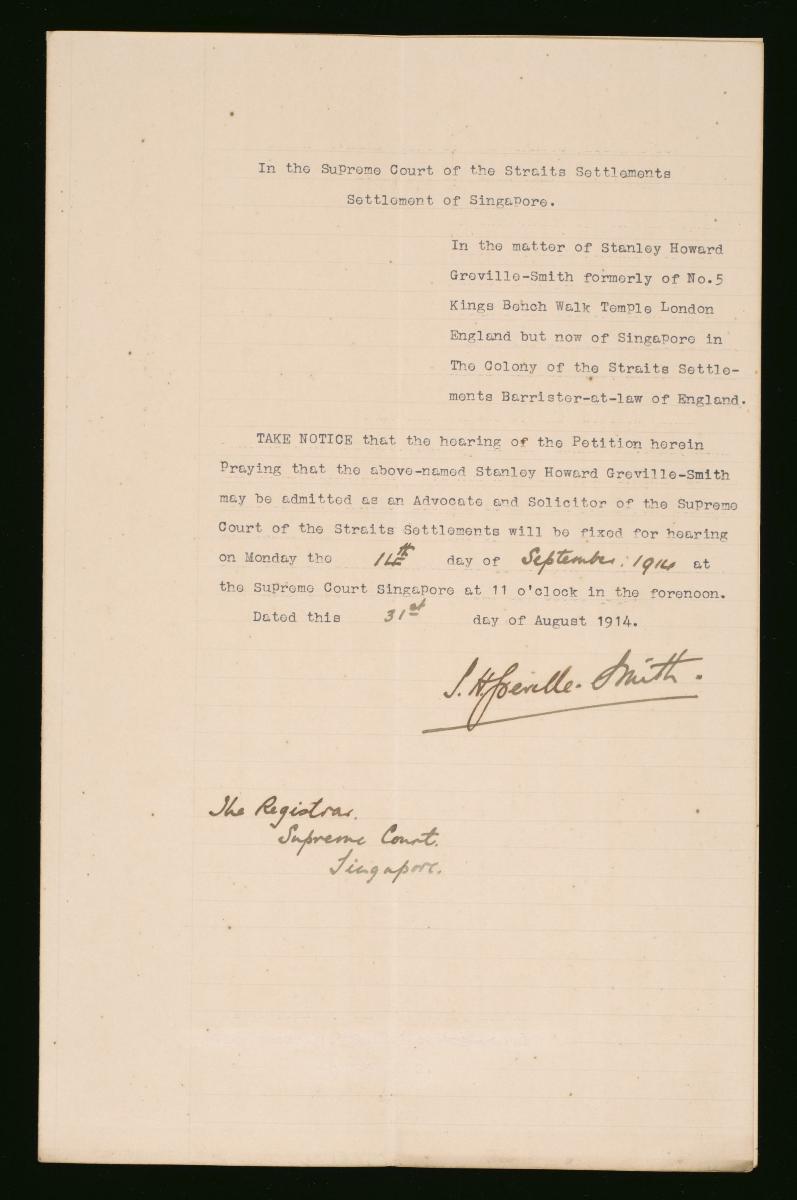 In the Supreme Court of the Straits Settlements
Settlement of Singapore.
In the matter of Stanley Howard
Greville-Smith formerly of No.5
Kings Bench Walk Temple London
England but now of Singapore in
The Colony of the Straits Settle-
ments Barrister-at-law of England.
TAKE NOTICE that the hearing of the Petition herein
Praying that the above-named Stanley Howard Greville-Smith
may be admitted as an Advocate and Solicitor of the Supreme
Court of the Straits Settlements will be fixed for hearing
on Monday the 14th day of September. 1914 at
the Supreme Court Singapore at 11 o'clock in the forenoon.
Dated this 31st day of August 1914.
S. H. Greville-Smith.
The Registrar.
Supreme Court.
Singapore.